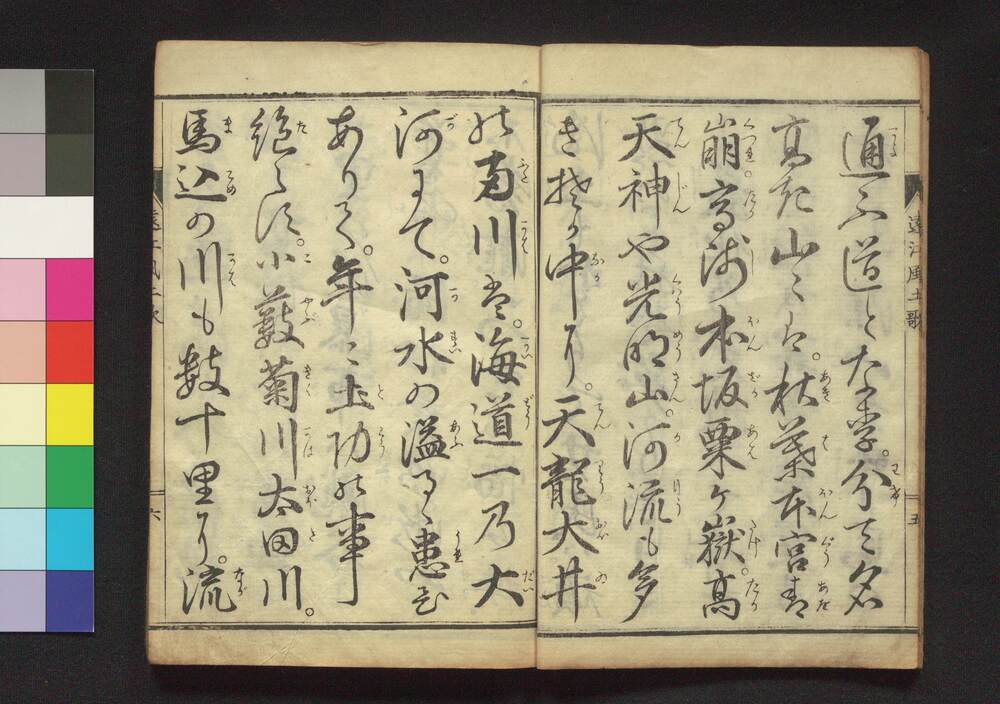 通ふ道となる。分て名
高き山々は。秋葉本宮青
崩高津本坂粟ヶ嶽。高
天神や光明山。河流も多
き其か中に。天龍大井
の両川は。海道一乃大
河にて。河水の溢るゝ患ひ
ありて。年々土功の事
絶へす。小藪菊川太田川。
馬込の川も数十里に。流
遠江風土歌
五
遠江風土歌
六